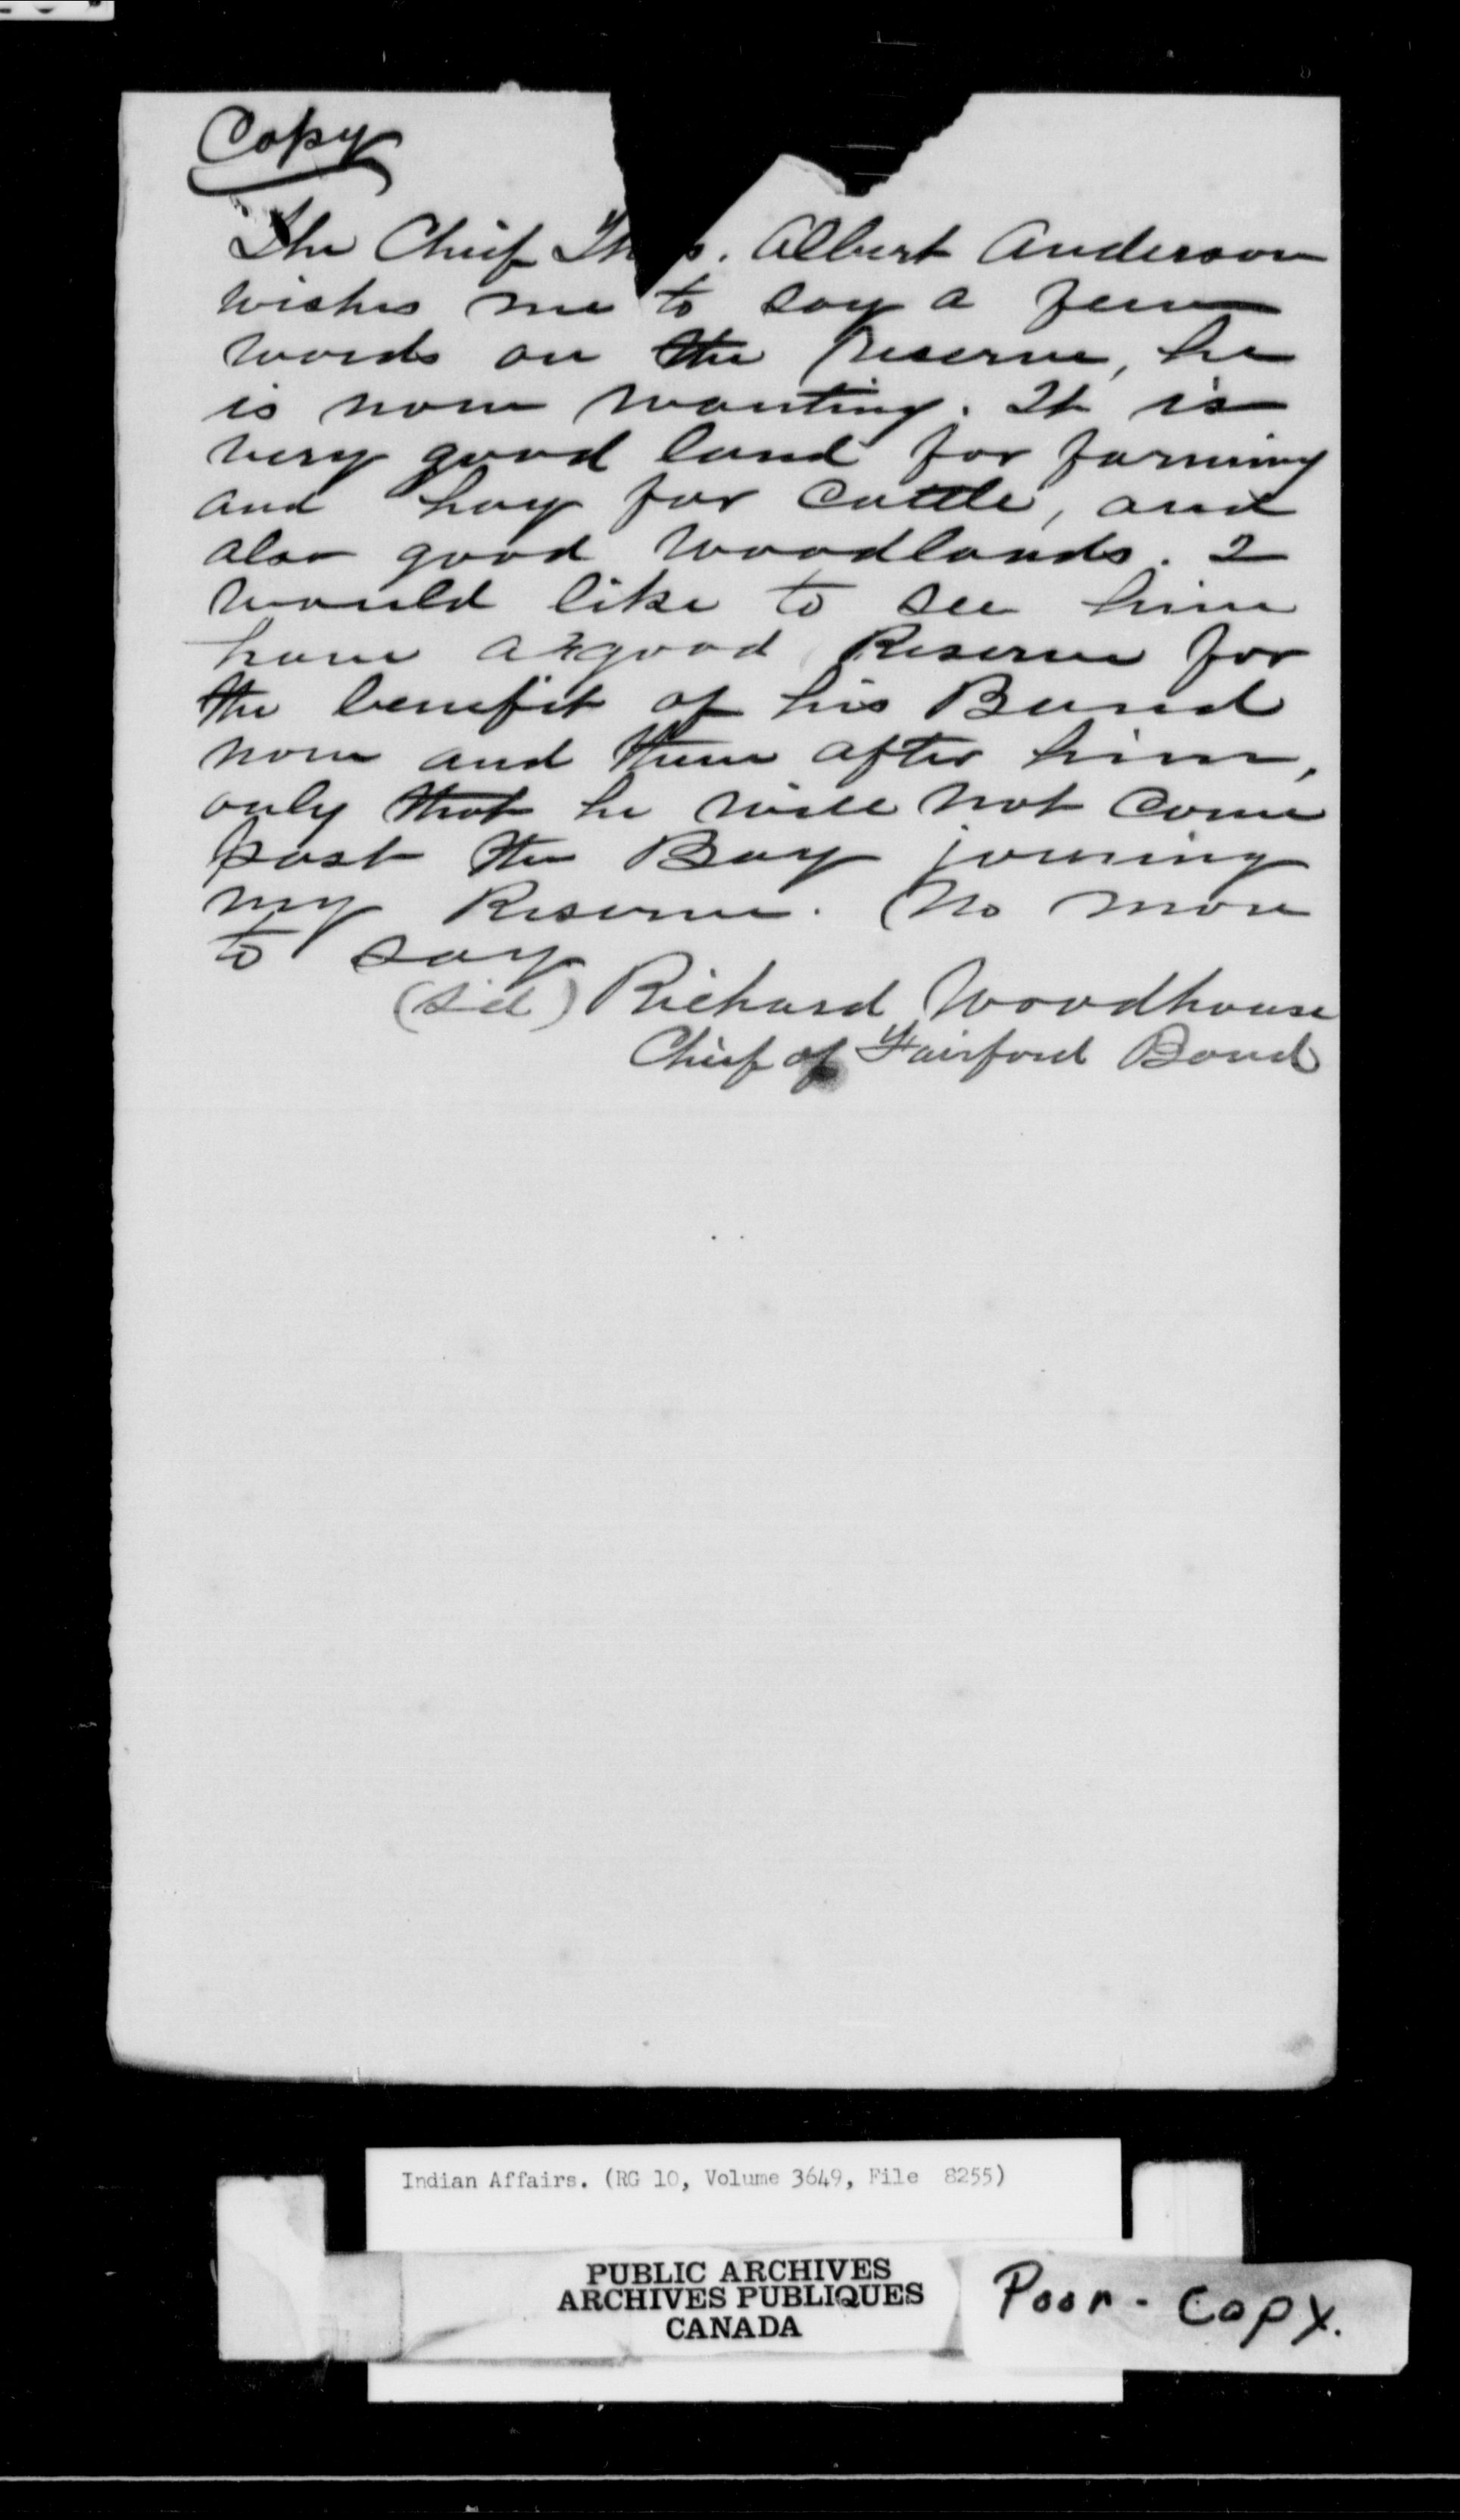 Copy
The Chief Th s. Albert Anderson
wishes me to say a few
words on the reserve, he
is now wanting. It is
very good land for farming
and hay for cattle, and
also good woodlands. I
would like to see him
have a good Reserve for
the benefit of his Band
now and them after him,
only that he will not come
past the Bay joining
my Reserve. No more
to say
(S'd) Richard Woodhouse
Chief of Fairford Band
Indian Affairs. (RG 10, Volume 3649, File 8255)
PUBLIC ARCHIVES
ARCHIVES PUBLIQUES
CANADA
Poor - Copy.